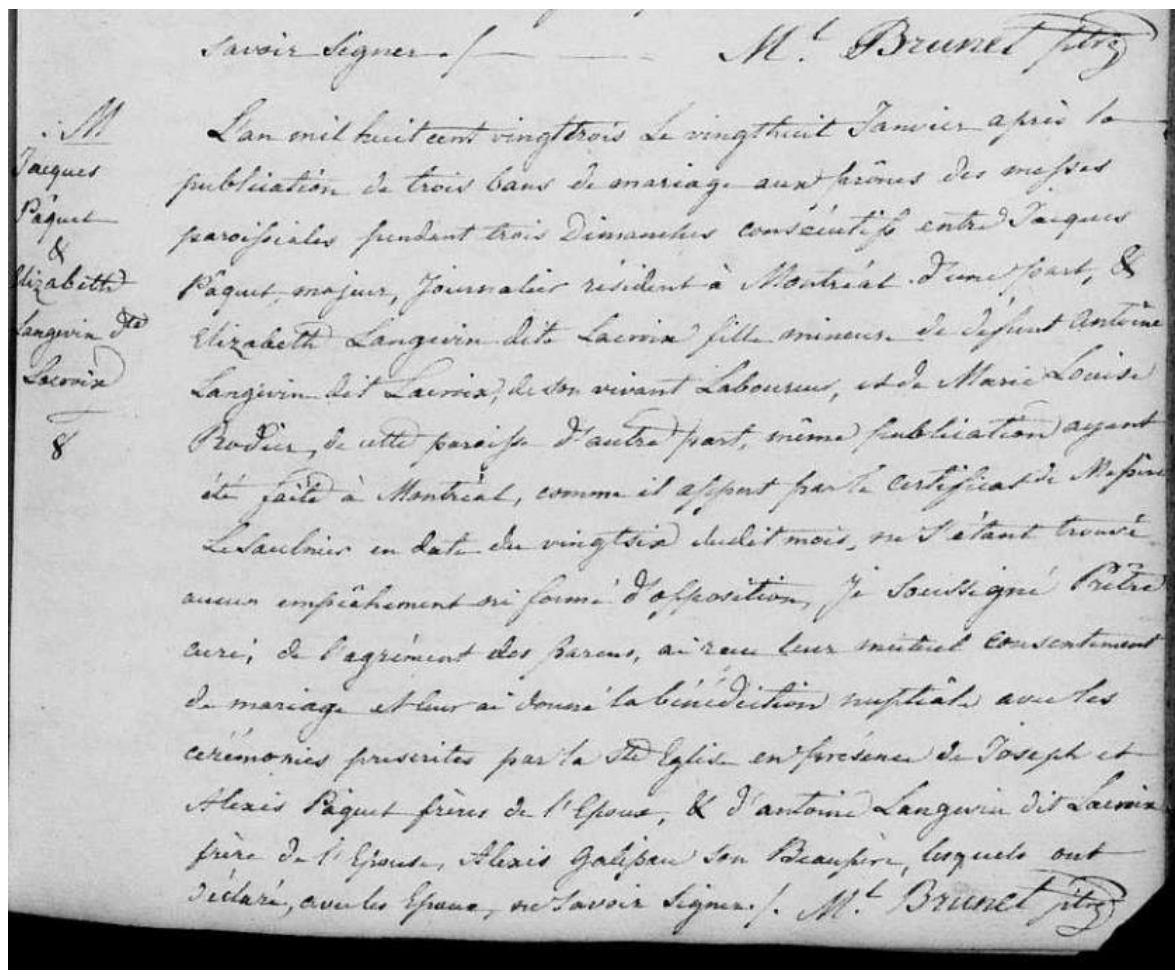 savoir signer./. M.t Brunet ptre
M
Jacques
Pâquet
&
Elizabeth
Langevin dte
Lacroix
8
L'an mil huit cent vingttrois le vingthuit Janvier après la
publication de trois bans de mariage aux prônes des messes
paroissiales pendant trois Dimanches consécutifs entre Jacques
Pâquet, majeur, Journalier résident à Montréal d'une part, &
Elizabeth Langevin dite Lacroix fille mineure de défunt Antoine
Langevin dit Lacroix, de son vivant Laboureur, et de Marie Louise
Rodier, de cette paroisse d'autre part, même publication ayant
été faite à Montréal, comme il appert par le certificat de Messire
LeSaulnier en date du vingtsix dudit mois, ne s'étant trouvé
aucun empêchement ni formé d'opposition, Je soussigné Prêtre
curé, de l'agrément des parens, ai recu leur mutuel consentement
de mariage et leur ai donné la bénédiction nuptiale avec les
cérémonies prescrites par la Ste Eglise en présence de Joseph et
Alexis Pâquet frères de l'Epoux, & d'antoine Langevin dit Lacroix
frère de l'Epouse, Alexis Galipau son Beaupère, lesquels ont
déclaré, avec les Epoux, ne savoir signer./. M.t Brunet ptre